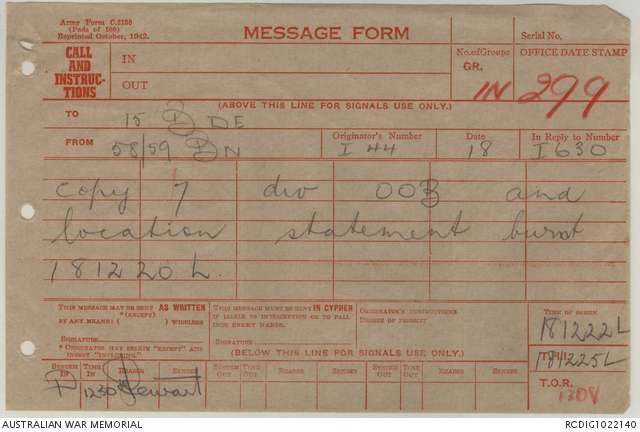 Army Form C.2136
(Pads of 100)
Reprinted October, 1942.
MESSAGE FORM
Serial No.
CALL
AND
INSTRUC-
TIONS
IN
OUT
No.ofGroups
GR.
OFFICE DATE STAMP
IN 299
(ABOVE THIS LINE FOR SIGNALS USE ONLY.)
TO 15 BDE
FROM 58/59 BN
Originator's Number I 44
Date 18
In Reply to Number I 630
copy 7 div OOB and
location statement burnt
181220 L.
THIS MESSAGE MAY BE SENT AS WRITTEN
*(EXCEPT)
BY ANY MEANS ( ) WIRELESS
SIGNATURE
* ORIGINATOR MAY DELETE "EXCEPT" AND
INSERT "INCLUDING."
THIS MESSAGE MUST BE SENT IN CYPHER
IF LIABLE TO INTERCEPTION OR TO FALL
INTO ENEMY HANDS.
SIGNATURE
ORIGINATOR'S INSTRUCTIONS
DEGREE OF PRIORITY
TIME OF ORIGIN
181222L
T.H.I.
181225L
T.O.R.
1308
(BELOW THIS LINE FOR SIGNALS USE ONLY.)
SYSTEM IN TIME IN READER SENDER SYSTEM OUT TIME OUT READER SENDER SYSTEM OUT TIME OUT READER SENDER
1230 Stewart
AUSTRALIAN WAR MEMORIAL
RCDIG1022140